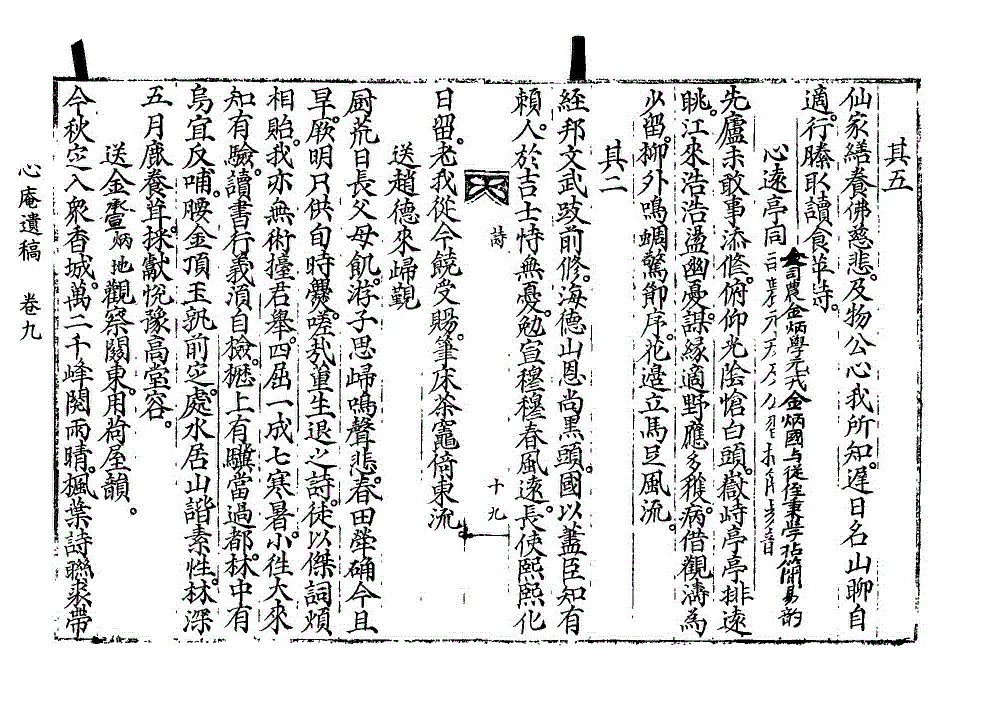 其五
仙家繕養佛慈悲及物公心我所知遲日名山聊自
適行縢取讀食革詩
心遠亭同金司農金炳學元戎金炳國与從侄秉學拈簡易韵
先廬未敢事添修俯仰光陰愴白頭嶽峙亭亭排遠
眺江來浩浩盪幽憂謀緣適野應多穫病借觀濤為
少留柳外鳴蜩驚節序花邊立馬旦風流
其二
経邦文武跂前修海德山恩尚黑頭國以藎臣知有
賴人於吉士恃無憂勉宣穆穆春風遠長使熙熙化
詩 十九
日留老我從今饒受賜筆床茶竈倚東流
送趙德來歸覲
厨荒日長父母飢游子思歸鳴聲悲春田犖确今且
旱厥明只供旬時爨嗟哉董生退之詩徒以傑詞煩
相貽我亦無術擡君舉四屈一成七寒暑小徃大來
知有驗讀書行義須自撿櫪上有驥當過都林中有
烏宜反哺腰金頂玉孰前定處水居山諧素性林深
五月鹿養茸採獻悅豫高堂容
送金炳地觀察關東用荷屋韻
今秋定入衆香城萬二千峰閱雨晴楓葉詩聯裘帶
心庵遺稿 卷九